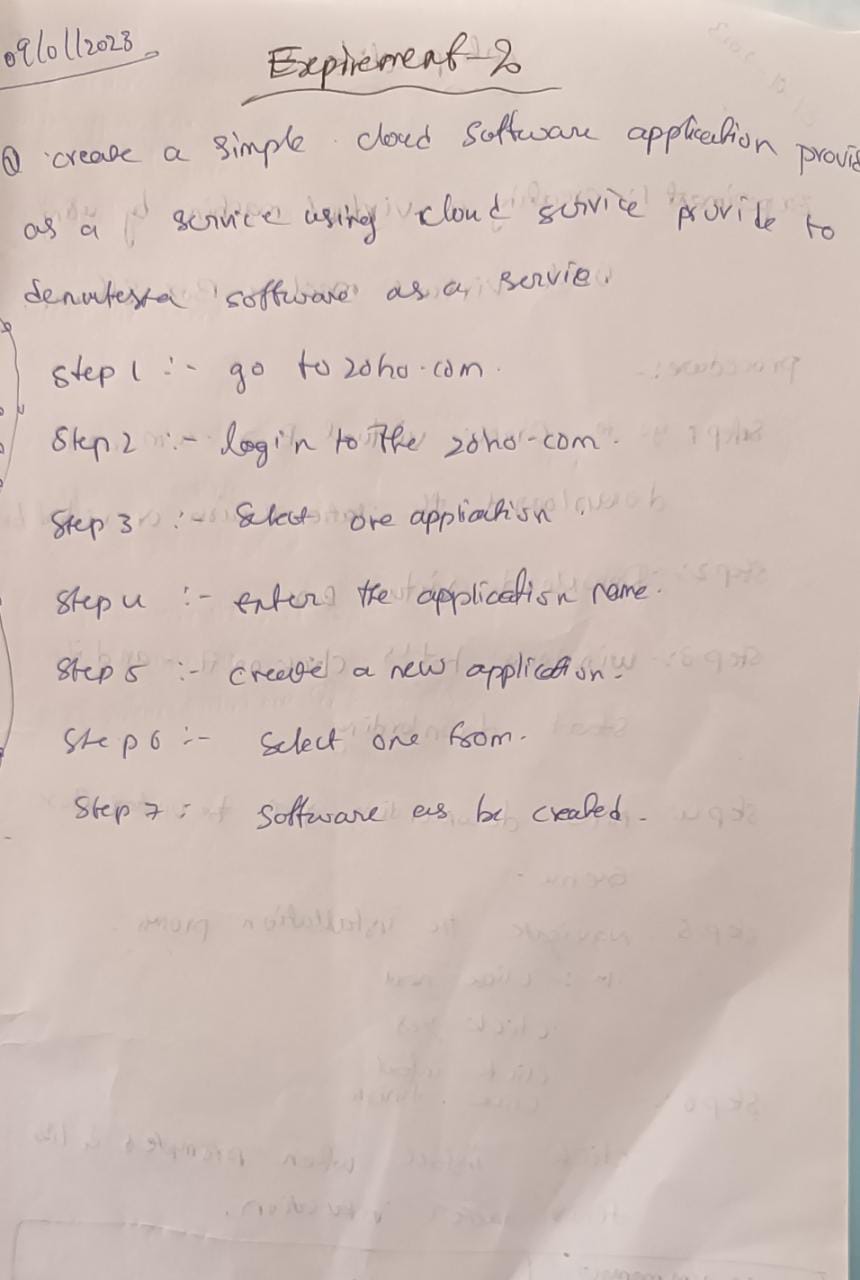 09/01/2023
Expirement-2
① create a simple cloud software application provid
as a service using cloud service provide to
software as a servie.
Step 1 :- go to zoho.com.
Step 2 :- login to the zoho.com.
Step 3 :- Select one appliactisn.
Step 4 :- enter the application name.
Step 5 :- create a new application.
Step 6 :- Select one from.
Step 7 : Software as be created.